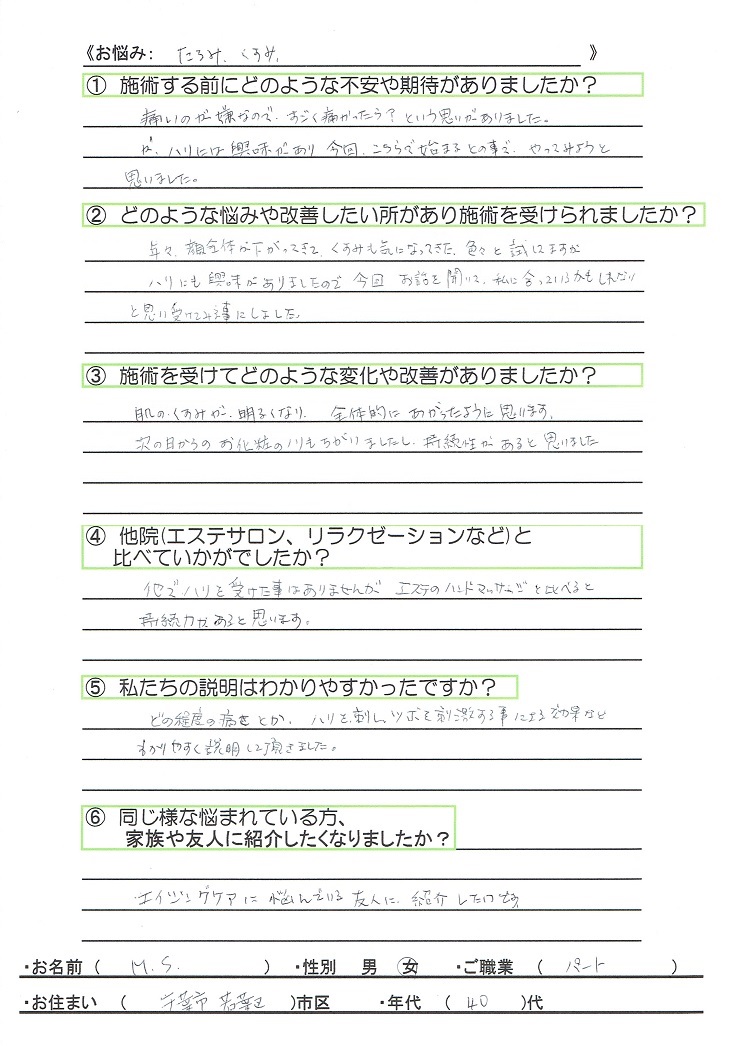 《お悩み: たるみ、くすみ、 》
① 施術する前にどのような不安や期待がありましたか？
痛いのが嫌なので、すごく痛かったら？という思いがありました。
が、ハリには興味があり 今回、こちらで始まるとの事で、やってみようと
思いました。
② どのような悩みや改善したい所があり施術を受けられましたか？
年々、顔全体が下がってきて、くすみも気になってきた、色々と試してますが
ハリにも興味がありましたので 今回 お話を聞いて、私に合っているかもしれない
と思い受けてみる事にしました。
③ 施術を受けてどのような変化や改善がありましたか？
肌のくすみが、明るくなり、全体的に あがったように思います。
次の日からの お化粧のノリもちがいましたし、持続性が あると思いました
④ 他院(エステサロン、リラクゼーションなど)と
比べていかがでしたか？
他でハリを受けた事はありませんが エステのハンドマッサージと比べると
持続力があると思います。
⑤ 私たちの説明はわかりやすかったですか？
どの程度の痛さとか、ハリを刺し、ツボを刺激する事による効果など
わかりやすく説明して頂きました。
⑥ 同じ様な悩まれている方、
家族や友人に紹介したくなりましたか？
エイジングケアに悩んでいる友人に、紹介したいです
・お名前 ( M.S. ) ・性別 男 女 ・ご職業 ( パート )
・お住まい ( 千葉市 若葉区 )市区 ・年代 ( 40 )代